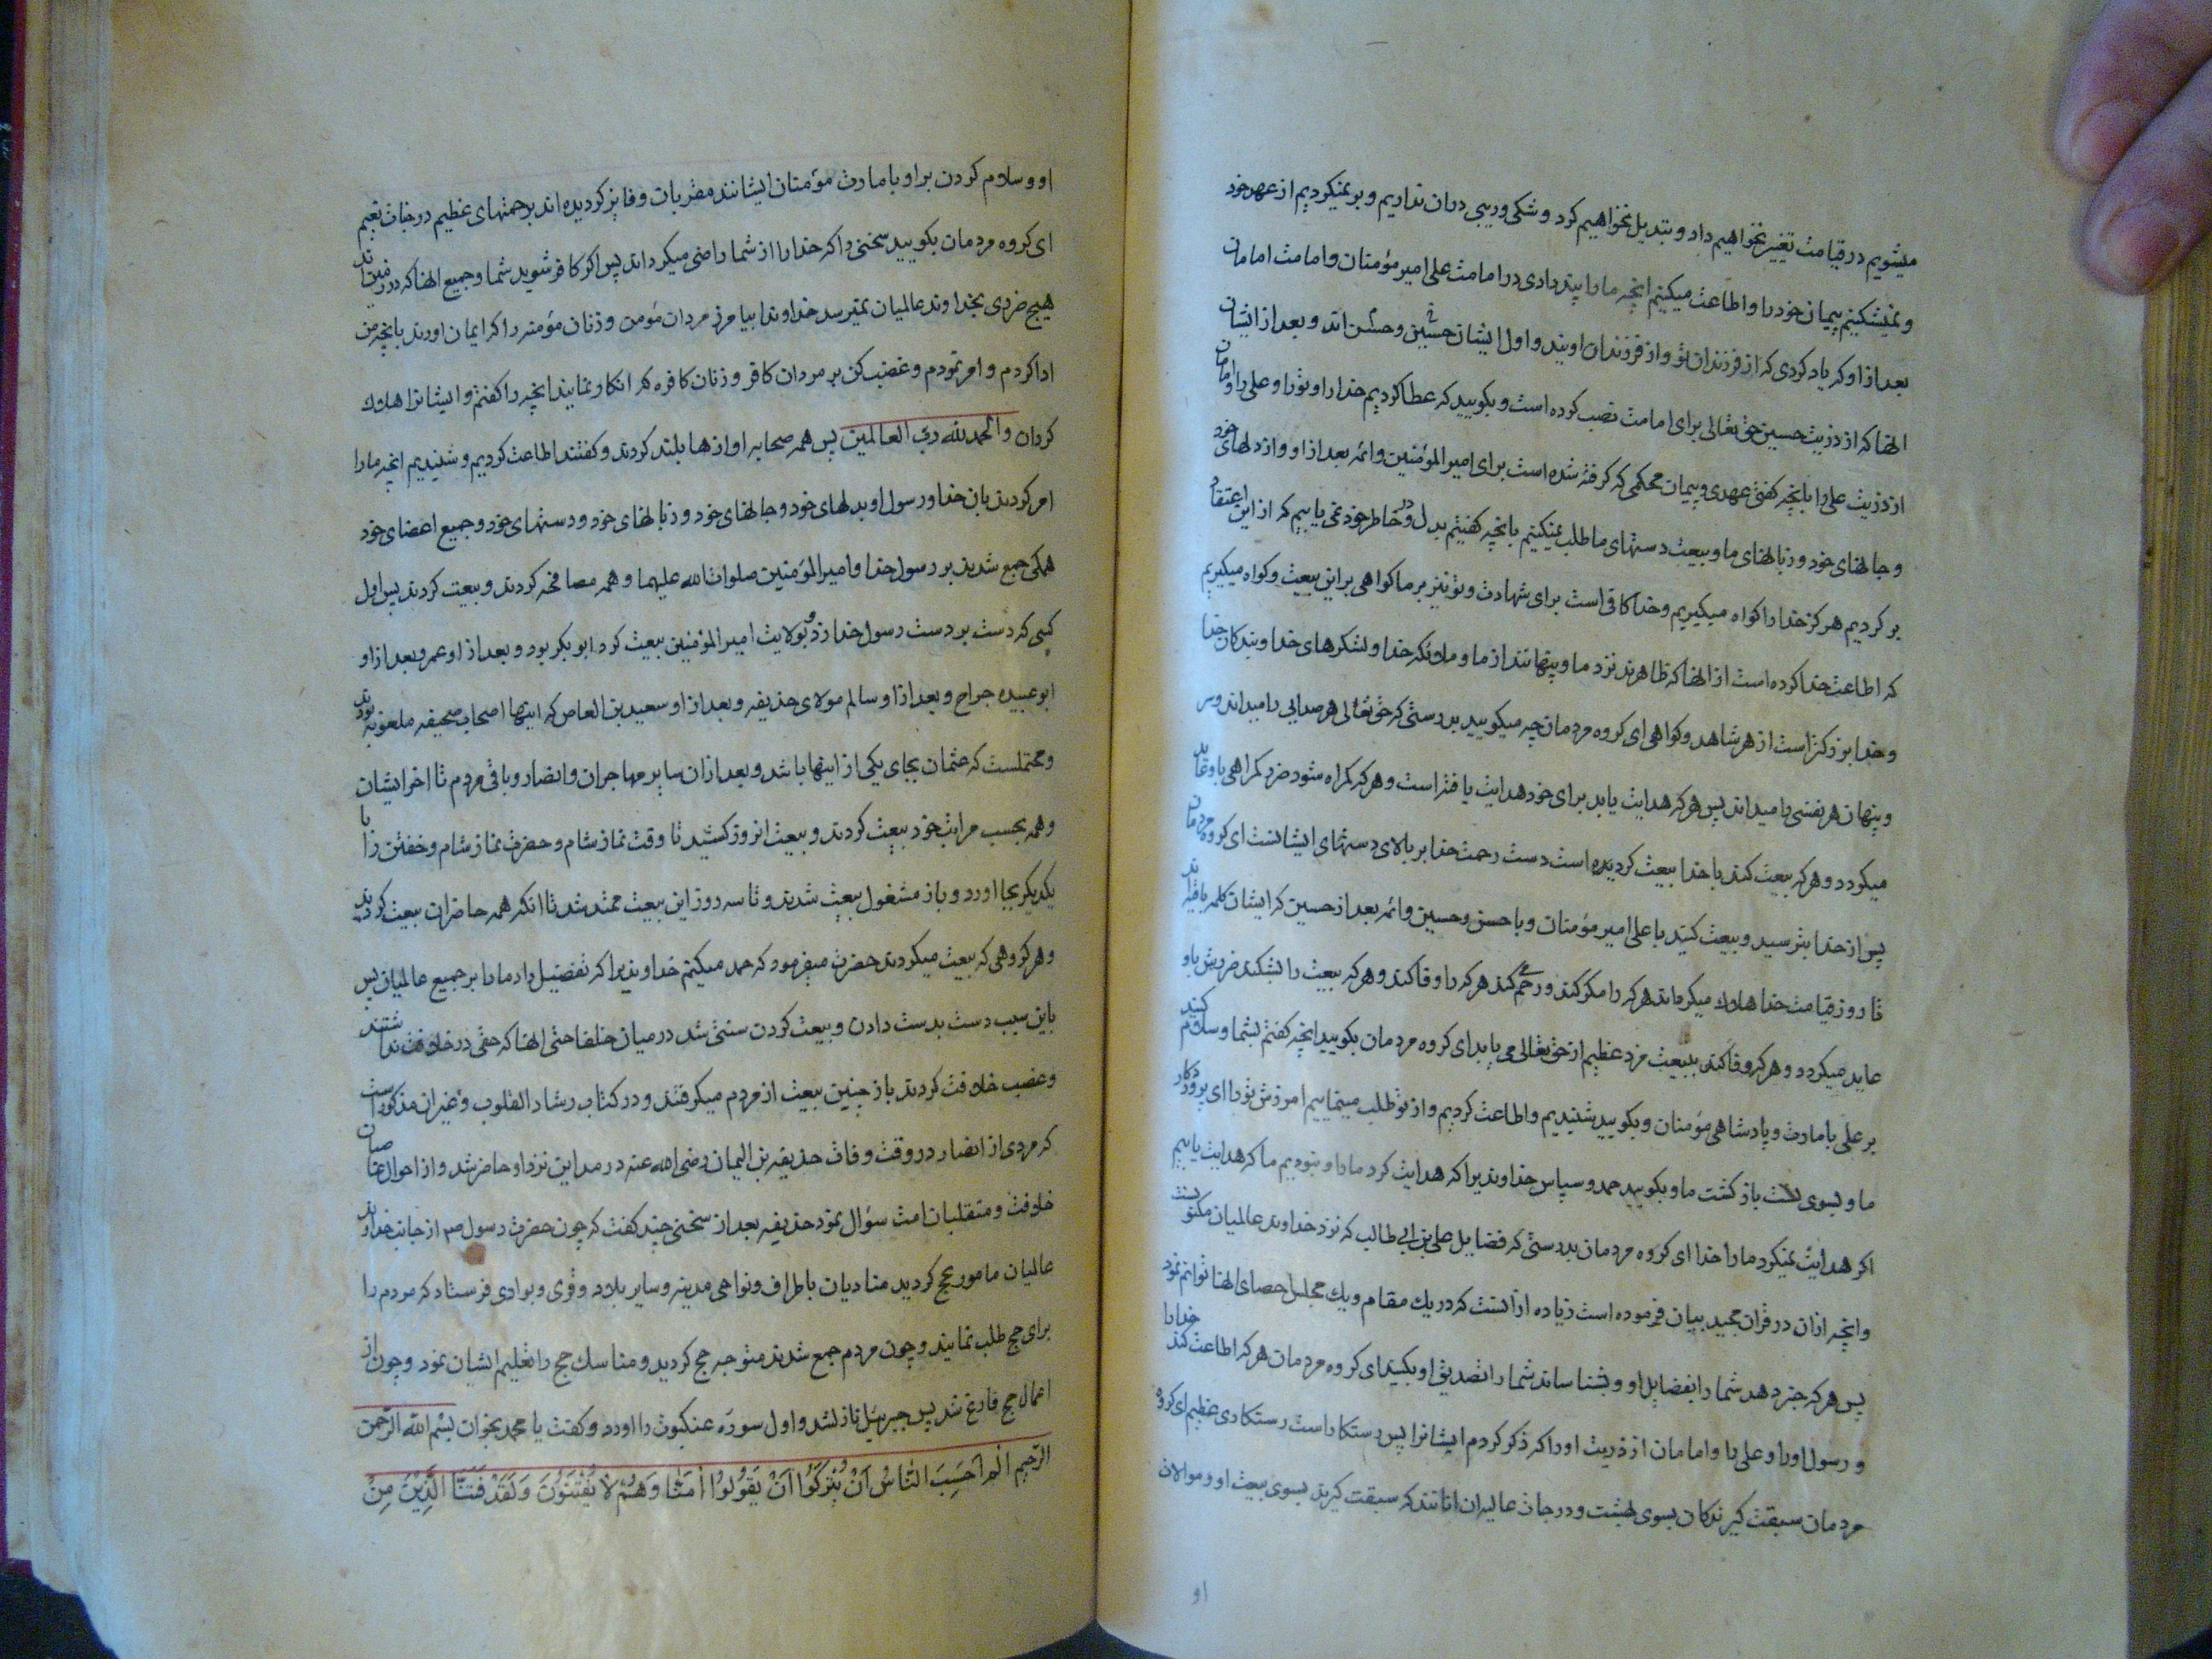 میشویم در قیامت تغییر نخواهیم داد و تبدیل نخواهیم کرد و شکی و ریبی دران نداریم و بر نمیکردیم از عهد خود
و نمیشکنیم پیمان خود را و اطاعت میکنیم انچه ما را پند دادی در امامت علی امیر مؤمنان و امامت امامان
بعد از او که یاد کردی که از فرزندان تو و از فرزندان اویند و اول ایشان حسین و حسن اند و بعد از ایشان
انها که از ذریت حسین حق تعالی برای امامت نصب کرده است و بکویید که عطا کردیم خدا را و تو را و علی را و امامان
از ذریت علی را بانچه کفتی عهدی و پیمان محکمی که کرفته شده است برای امیر المؤمنین و ائمه بعد از او و از دلهای خود
و جانهای خود و زبانهای ما و بیعت دستهای ما طلب نمیکنیم بانچه کفتیم بدل و در خاطر خود نمی یابیم که از این اعتقاد
بر کردیم هرکز خدا را کواه میکیریم و خدا کافی است برای شهادت و تو نیز بر ما کواهی بر این بیعت و کواه میکیریم
که اطاعت خدا کرده است از انها که ظاهرند نزد ما و پنهانند از ما و ملائکه خدا و لشکرهای خدا و بندکان خدا
و خدا بزرکتر است از هر شاهد و کواهی ای کروه مردمان چه میکویید بدرستی که حق تعالی هر صدایی را میداند و سر
و پنهان هر نفسی را میداند پس هر که هدایت یابد برای خود هدایت یافته است و هر که کمراه شود ضرر کمراهی باو عاید
میکردد و هر که بیعت کند با خدا بیعت کردیده است دست رحمت خدا بر بالای دستهای ایشانست ای کروه مردمان
پس از خدا بترسید و بیعت کنید با علی امیر مؤمنان و با حسن و حسین و ائمه بعد از حسین که ایشان کلمه باقیه اند
تا روز قیامت خدا هلاک میکرداند هر که را مکر کند و رحم کند هر که را وفا کند و هر که بیعت را بشکند ضررش باو
عاید میکردد و هر که وفا کند ببیعت مزد عظیم از حق تعالی می یابد ای کروه مردمان بکویید انچه کفتم بشما و سلام کنید
بر علی بامارت و پادشاهی مؤمنان و بکویید شنیدیم و اطاعت کردیم و از تو طلب مینماییم امرزش تو را ای پروردکار
ما و بسوی تست باز کشت ما و بکویید حمد و سپاس خداوندیرا که هدایت کرد ما را و نبودیم ما که هدایت یابیم
اکر هدایت نمیکرد ما را خدا ای کروه مردمان بدرستی که فضایل علی بن ابی طالب که نزد خداوند عالمیان مکتوبست
و انچه ازان در قران مجید بیان فرموده است زیاده ازانست که در یک مقام و یک مجلس احصای انها توانم نمود
پس هر که خبر دهد شما را بفضایل او و بشناساند شما را تصدیق او بکنید ای کروه مردمان هر که اطاعت کند خدا را
و رسول او را و علی را و امامان از ذریت او را که ذکر کردم ایشانرا پس رستکار است رستکاری عظیم ای کروه
مردمان سبقت کیرندکان بسوی بهشت و درجات عالیه ان انانند که سبقت کیرند بسوی بیعت او و موالات
او
او و سلام کردن بر او بامارت مؤمنان ایشانند مقربان و فایز کردیده اند برحمتهای عظیم در جنات نعیم
ای کروه مردمان بکویید سخنی را که خدا را از شما راضی میکرداند پس اکر کافر شوید شما و جمیع انها که در زمین اند
هیچ ضرری بخداوند عالمیان نمیرسد خداوندا بیامرز مردان مؤمن و زنان مؤمنه را که ایمان اورند بانچه من
ادا کردم و امر نمودم و غضب کن بر مردان کافر و زنان کافره که انکار نمایند انچه را کفتم و ایشانرا هلاک
کردان و الحمد لله رب العالمین پس همه صحابه اوازها بلند کردند و کفتند اطاعت کردیم و شنیدیم انچه ما را
امر کردید بان خدا و رسول او بدلهای خود و جانهای خود و زبانهای خود و دستهای خود و جمیع اعضای خود
همکی جمع شدند بر رسول خدا و امیر المؤمنین صلوات الله علیهما و همه مصافحه کردند و بیعت کردند پس اول
کسی که دست بر دست رسول خدا زد و بولایت امیر المؤمنین بیعت کرد ابو بکر بود و بعد از او عمر و بعد از او
ابو عبیده جراح و بعد از او سالم مولای حذیفه و بعد از او سعید بن العاص که اینها اصحاب صحیفه ملعونه بودند
و محتملست که عثمان بجای یکی از اینها باشد و بعد ازان سایر مهاجران و انصار و باقی مردم تا اخر ایشان
و همه بحسب مراتب خود بیعت کردند و بیعت انروز کشید تا وقت نماز شام و حضرت نماز شام و خفتن را با
یکدیکر بجا اورد و باز مشغول بیعت شدند و تا سه روز این بیعت ممتد شد تا انکه همه حاضران بیعت کردند
و هر کروهی که بیعت میکردند حضرت میفرمود که حمد میکنم خداوندیرا که تفضیل داد ما را بر جمیع عالمیان پس
باین سبب دست بدست دادن و بیعت کردن سنتی شد در میان خلفا حتی انها که حقی در خلافت نداشتند
و غصب خلافت کردند باز چنین بیعت از مردم میکرفتند و در کتاب رشاد القلوب و غیر ان مذکور است
که مردی از انصار در وقت وفات حذیفه بن الیمان رضی الله عنه در مداین نزد او حاضر شد و از احوال غاصبان
خلافت و متقلبان امت سؤال نمود حذیفه بعد از سخنی چند کفت که چون حضرت رسول ص از جانب خداوند
عالمیان مامور بحج کردید منادیان باطراف و نواحی مدینه و سایر بلاد و قری و بوادی فرستاد که مردم را
برای حج طلب نمایند و چون مردم جمع شدند متوجه حج کردید و مناسک حج را تعلیم ایشان نمود و چون از
اعمال حج فارغ شد پس جبرئیل نازل شد و اول سوره عنکبوت را اورد و کفت یا محمد بخوان بسم الله الرحمن
الرحیم الم اَحَسِبَ النّاسُ اَنْ یُتْرَکُوا اَنْ یَقُولُوا اٰمَنّا وَهُمْ لا یُفْتَنُونَ وَلَقَدْ فَتَنَّا الَّذِینَ مِنْ